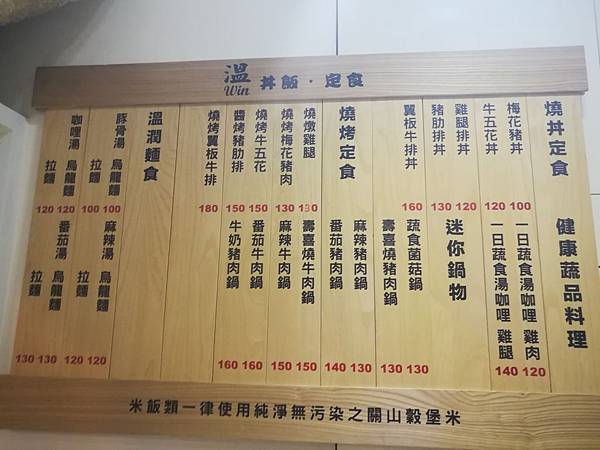 溫 Win 丼飯.定食
燒丼定食
梅花豬丼 100
牛五花丼 120
雞腿排丼 120
豬肋排丼 130
翼板牛排丼 160
燒烤定食
燒燉雞腿 130
燒烤梅花豬肉 130
燒烤牛五花 150
醬烤豬肋排 150
燒烤翼板牛排 180
溫潤麵食
豚骨湯 烏龍麵 100
拉麵 100
咖哩湯 烏龍麵 120
拉麵 120
健康蔬品料理
一日蔬食湯咖哩 雞肉 120
一日蔬食湯咖哩 雞腿 140
迷你鍋物
蔬食菌菇鍋 130
壽喜燒豬肉鍋 130
麻辣豬肉鍋 130
番茄豬肉鍋 140
壽喜燒牛肉鍋 150
麻辣牛肉鍋 150
番茄牛肉鍋 160
牛奶豬肉鍋 160
麻辣湯 烏龍麵 120
拉麵 120
番茄湯 烏龍麵 130
拉麵 130
米飯類一律使用純淨無污染之關山穀堡米